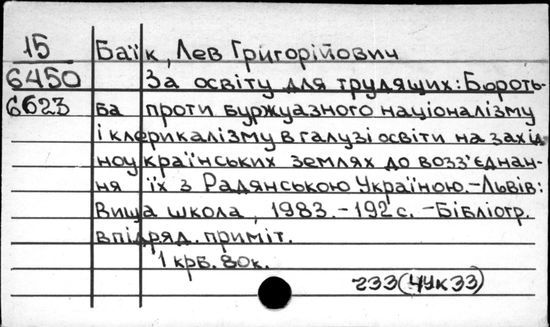 15 Баїк, Лев Григорійович
6450 За освіту для трудящих: Бороть-
6623 ба проти буржуазного націоналізму
і клерикалізму в галузі освіти на захід
ноукраїнських землях до возз'єднан-
ня їх з Радянською Україною.-Львів:
Вища школа, 1983.-192 с. -Бібліогр.
в підряд. приміт.
1 крб. 80к.
233(4Ук33)